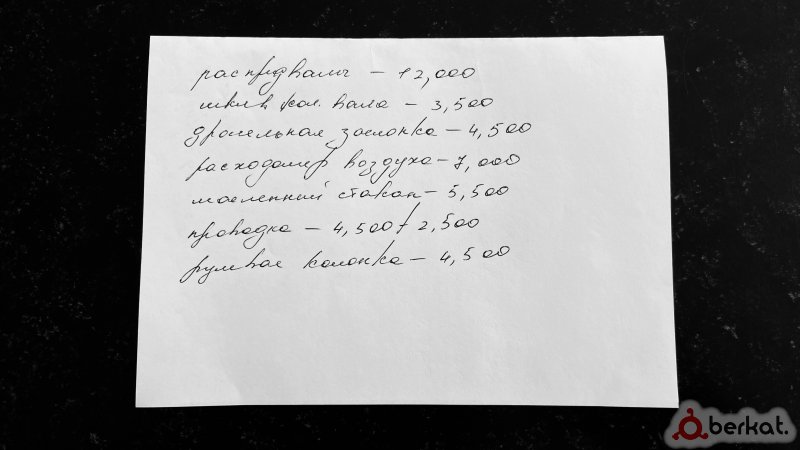 распредвалы – 12,000
шкив кол. вала – 3,500
дросельная заслонка – 4,500
расходомер воздуха – 7,000
масленний стакан – 5,500
проводка – 4,500 / 2,500
рулевая колонка – 4,500
berkat.